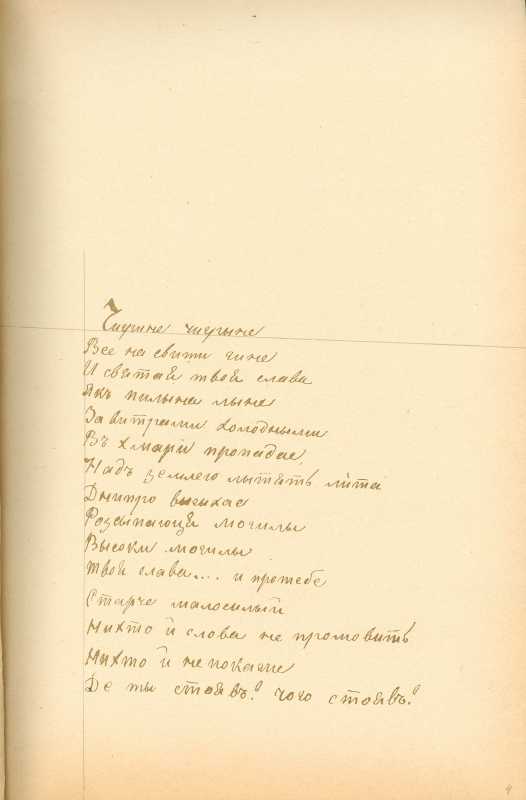 Чигрине чигрыне
Все на свити гине
И святая твоя слава
Якъ пилына лыне
За витрами холодными
Въ хмарі пропадае,
Надъ землею лытять літа
Днипро высыхае
Розсыпаюця могилы
Высоки могилы
твоя слава.... и протебе
Старче малосилый
Нихто й слова не промовить
Нихто й непокаже
Де ты стоявъ? чого стоявъ?
4